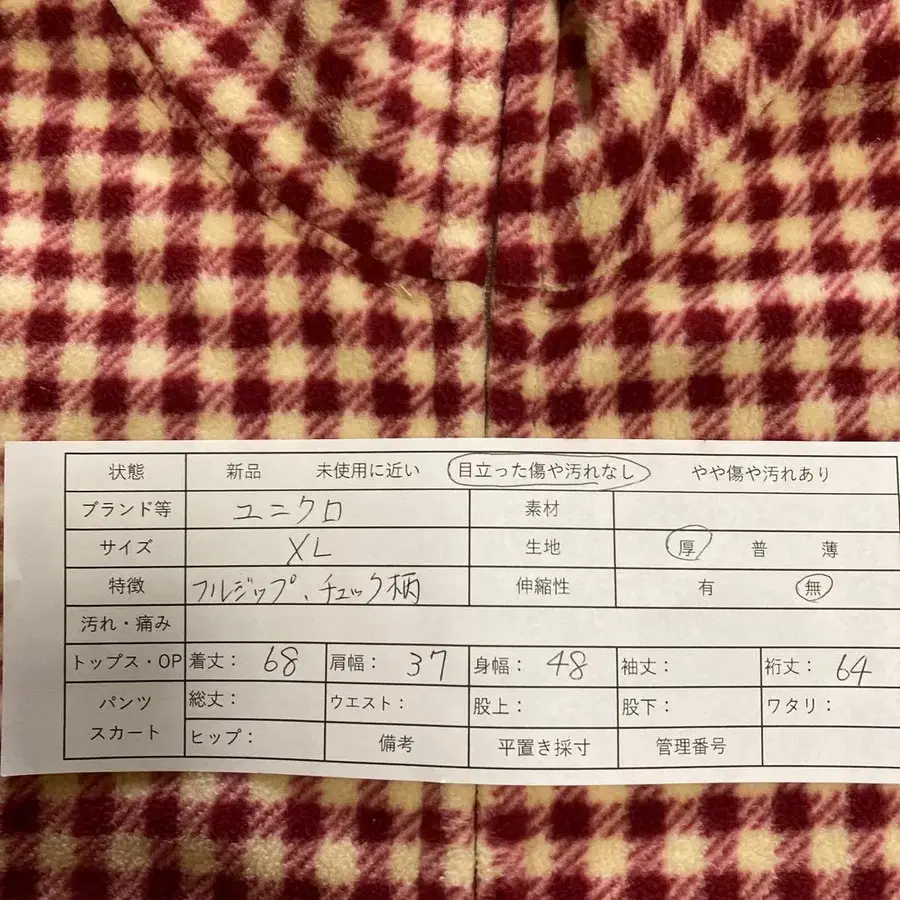 状態 新品 未使用に近い 目立った傷や汚れなし やや傷や汚れあり
ブランド等 ユニクロ 素材
サイズ XL 生地 厚 普 薄
特徴 フルジップ、チェック柄 伸縮性 有 無
汚れ・痛み
トップス・OP 着丈： 68 肩幅： 37 身幅： 48 袖丈： 裄丈： 64
パンツ 総丈： ウエスト： 股上： 股下： ワタリ：
スカート ヒップ： 備考 平置き採寸 管理番号